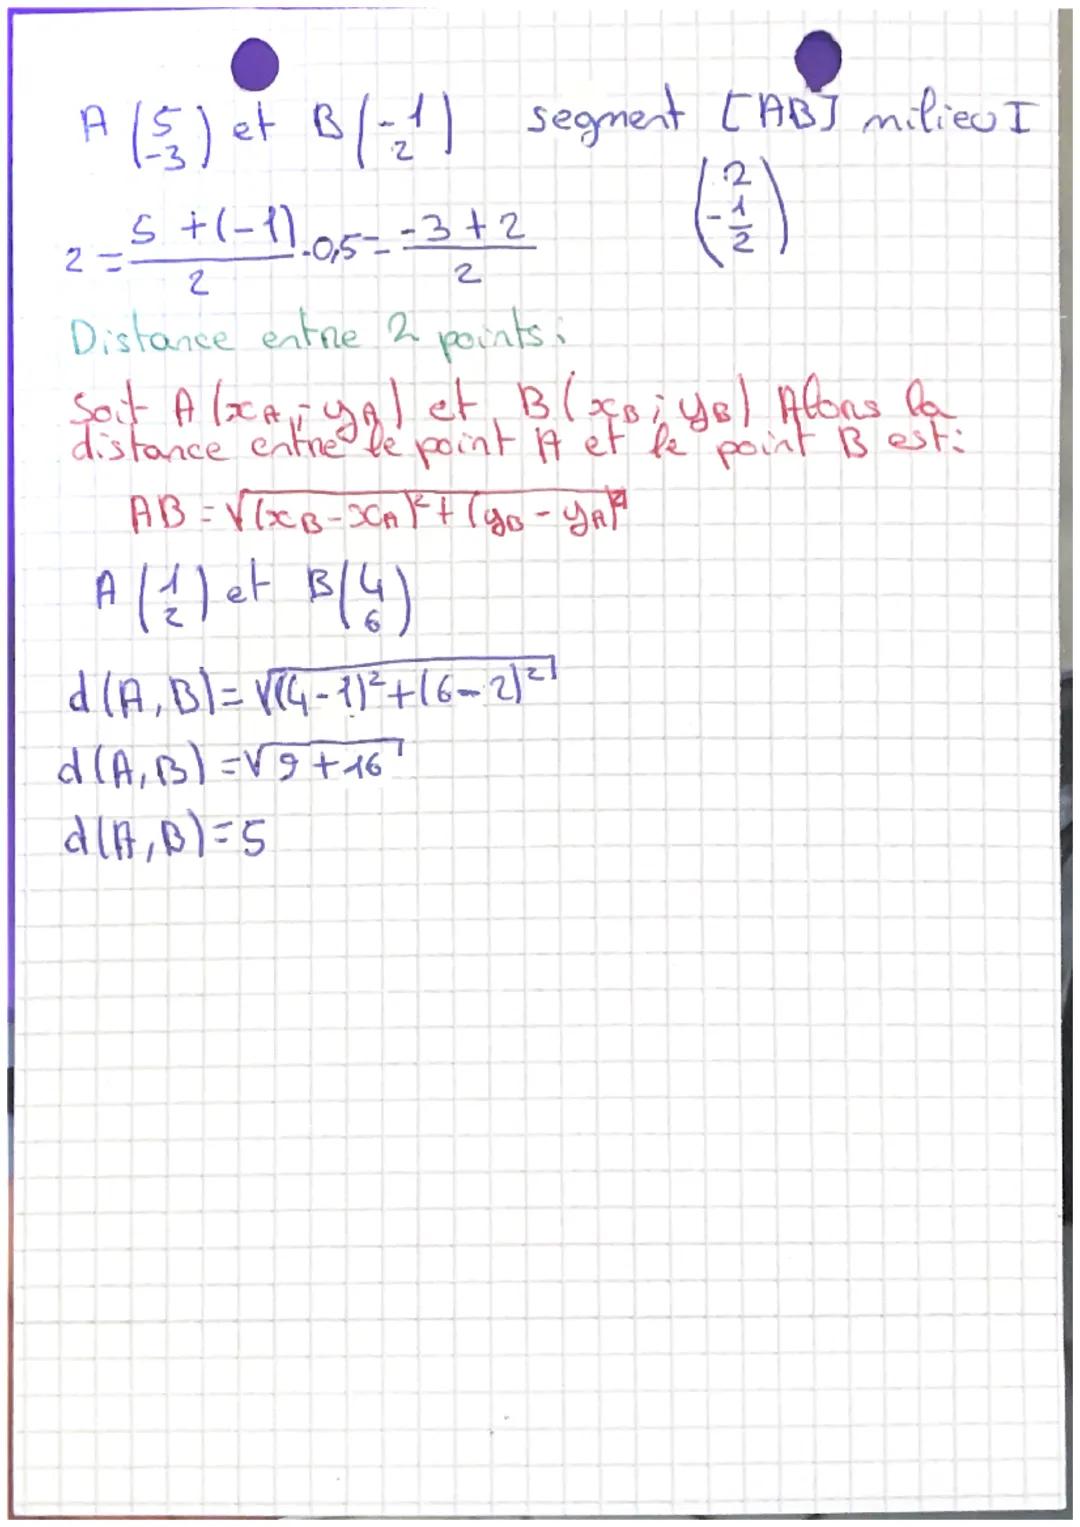 A (5 -3) et B (-1 2) segment [AB] milieu I (2 -1/2)
2 = (5 + (-1))/2 -0,5 = (-3 + 2)/2
Distance entre 2 points :
Soit A (xA ; yA) et B (xB ; yB) Alors la
distance entre le point A et le point B est :
AB = √((xB - xA)² + (yB - yA)²)
A (1 2) et B (4 6)
d(A, B) = √((4 - 1)² + (6 - 2)²)
d(A, B) = √(9 + 16)
d(A, B) = 5